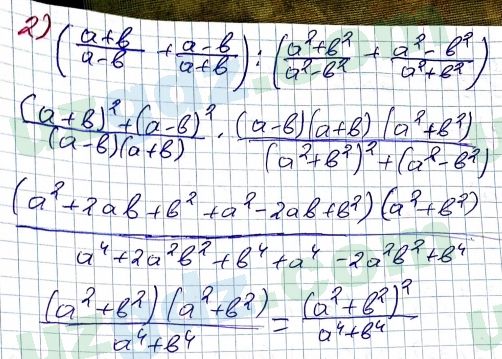 2) ((a+b)/(a-b) + (a-b)/(a+b)) : ((a²+b²)/(a²-b²) + (a²-b²)/(a²+b²))
((a+b)²+(a-b)²)/((a-b)(a+b)) · ((a-b)(a+b)(a²+b²))/((a²+b²)²+(a²-b²))
((a²+2ab+b²+a²-2ab+b²)(a²+b²))/(a⁴+2a²b²+b⁴+a⁴-2a²b²+b⁴)
((a²+b²)(a²+b²))/(a⁴+b⁴) = (a²+b²)²/(a⁴+b⁴)